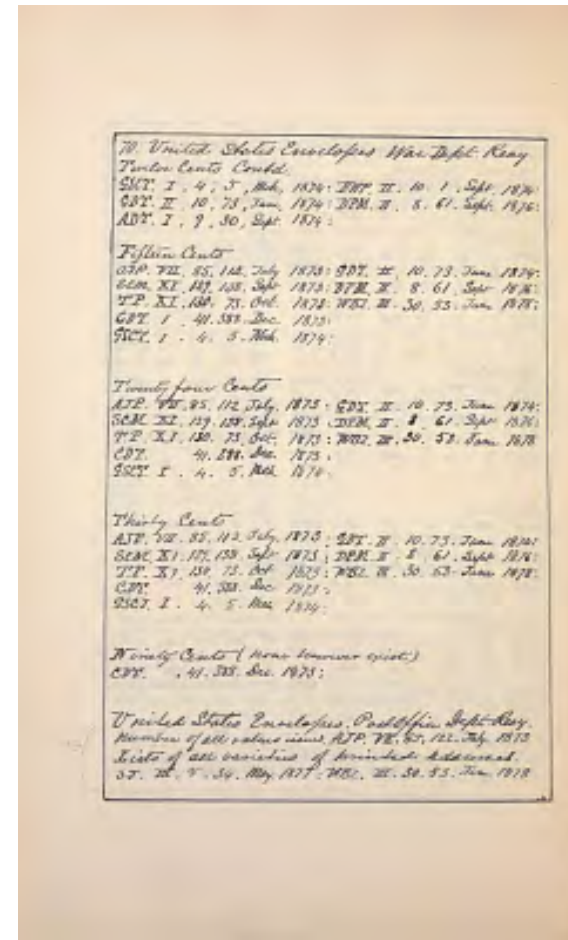 70. United States Envelopes War Dept. Reay
Twelve Cents Contd.
GSCT. I. 4, 5, Mch, 1874: II. 10. 1. Sept. 1874
GDT. II. 10, 73, June, 1874: DPM. II. 8. 61. Sept. 1876:
ADT. I, 9, 30, Sept. 1874:
Fifteen Cents
AJP. VII. 85, 112, July 1873: GDT. II. 10. 73. June 1874:
SCM. XI. 129. 138. Sept 1873: DPM. II. 8. 61. Sept 1876:
TP. XI. 130. 73. Oct. 1873: WBI. III. 30. 53. June 1878:
CDT. 41. 388. Dec. 1873:
GSCT. I. 4. 5. Mch. 1874:
Twenty four Cents
AJP. VII. 85. 112 July. 1873: GDT. II. 10. 73. June 1874:
SCM. XI. 129. 138. Sept 1873: DPM. II. 8. 61. Sept 1876:
TP. XI. 130. 73. Oct. 1873: WBI. III. 30. 53. June 1878
CDT. 41. 388. Dec. 1873:
GSCT. I. 4. 5. Mch 1874.
Thirty Cents
AJP. VII. 85. 112. July. 1873: GDT. II. 10. 73. June 1874:
SCM. XI. 129. 138. Sept 1873: DPM. II. 8. 61. Sept 1876:
TP. XI. 130. 73. Oct 1873: WBI. III. 30. 53. June 1878:
CDT. 41. 388. Dec 1873:
GSCT. I. 4. 5. Mch 1874:
Ninety Cents (none however exist.)
CDT. 41. 388. Dec. 1873:
United States Envelopes. Post Office Dept. Reay.
Number of all values issued, AJP. VII. 85, 112. July 1873
Lists of all varieties of
III. 5. 34. May. 1877: WBI. III. 30. 53. June 1878